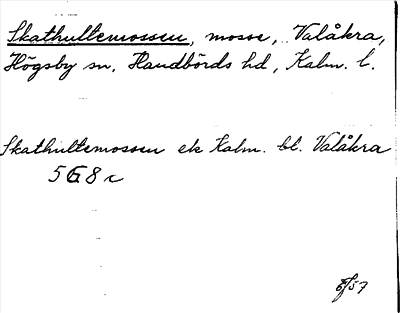 Skathultemossen, mosse, Valåkra,
Högsby sn, Handbörds hd, Kalm. l.
Skathultemossen ek Kalm. bl. Valåkra
5G8c